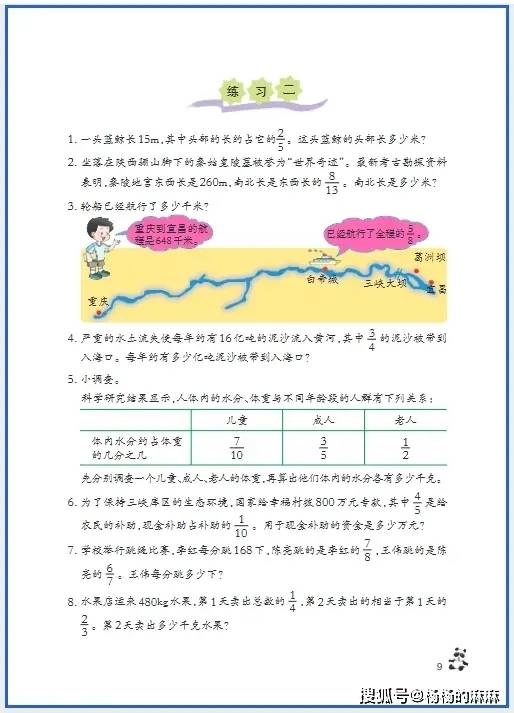 练习二
1. 一头蓝鲸长15m,其中头部的长约占它的2/5。这头蓝鲸的头部长多少米?
2. 坐落在陕西骊山脚下的秦始皇陵墓被誉为“世界奇迹”。最新考古勘探资料
表明,秦陵地宫东西长是260m,南北长是东西长的8/13。南北长是多少米?
3. 轮船已经航行了多少千米?
重庆到宜昌的航
程是648千米。
已经航行了全程的5/8。
葛洲坝
白帝城
三峡大坝
宜昌
重庆
4. 严重的水土流失使每年约有16亿吨的泥沙流入黄河,其中3/4的泥沙被带到
入海口。每年约有多少亿吨泥沙被带到入海口?
5. 小调查。
科学研究结果显示,人体内的水分、体重与不同年龄段的人群有下列关系:
儿童 成人 老人
体内水分约占体重
的几分之几 7/10 3/5 1/2
先分别调查一个儿童、成人、老人的体重,再算出他们体内的水分各有多少千克。
6. 为了保持三峡库区的生态环境,国家给幸福村拨800万元专款,其中4/5是给
农民的补助,现金补助占补助的1/10。用于现金补助的资金是多少万元?
7. 学校举行跳绳比赛,李红每分跳168下,陈亮跳的是李红的7/8,王伟跳的是陈
亮的6/7。王伟每分跳多少下?
8. 水果店运来480kg水果,第1天卖出总数的1/4,第2天卖出的相当于第1天的
2/3。第2天卖出多少千克水果?
9
搜狐号@杨杨的麻麻